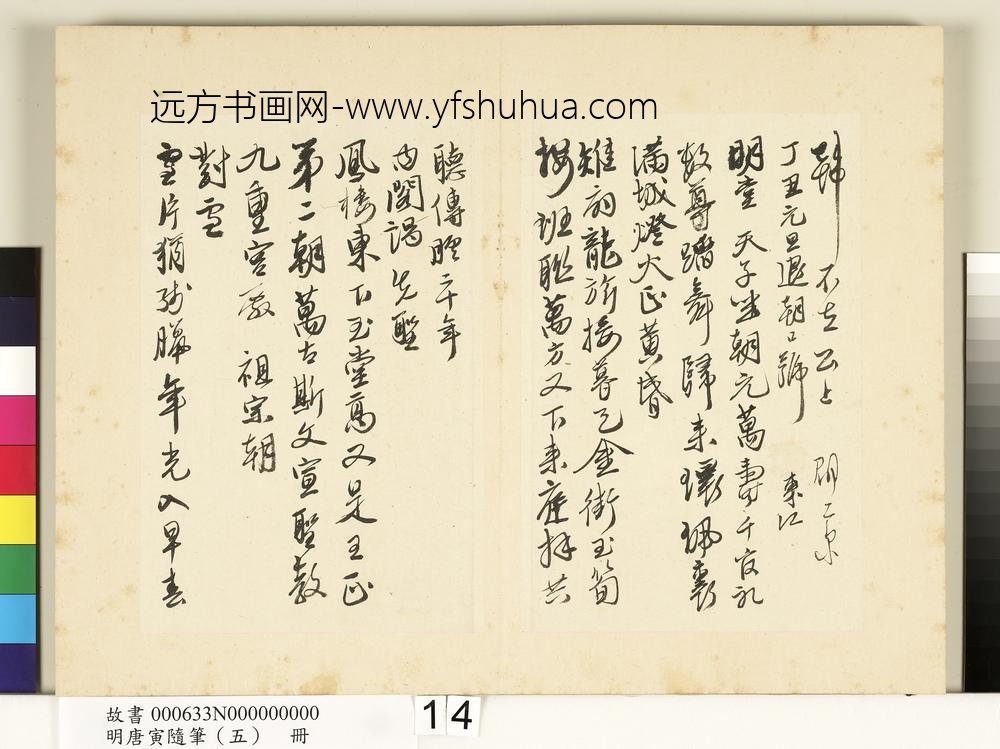 远方书画网-www.yfshuhua.com
不去
丁丑元旦退朝口號 東江
明堂 天子坐朝元萬壽千官礼
数尊蹈舞歸來環珮裊
滿城燈火正黃昏
雉扇龍旂接暮元金街玉筍
班聯萬方又下來庭拜共
聽傳臚二十年
內閣謁先聖
鳳樓東下玉堂高又是王正
第二朝萬古斯文宣聖教
九重宮 祖宗朝
對雪
雪片猶殘臘年光入早春
故書 000633N000000000
明唐寅隨筆（五） 冊
14